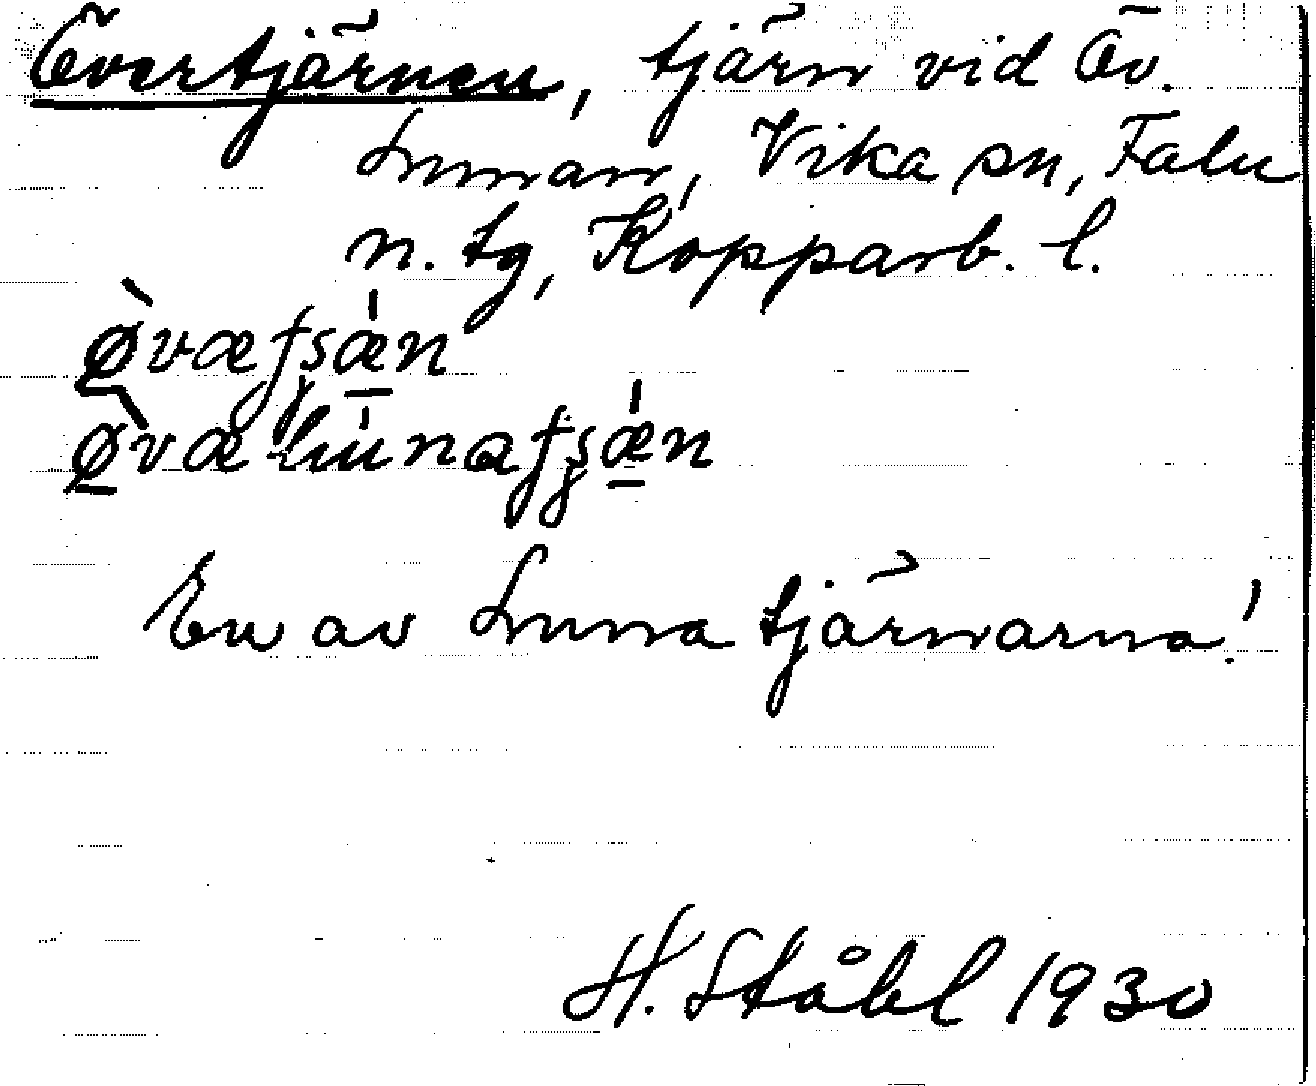 Övertjärnen, tjärn vid Öv.
Lunnan, Vika sn, Falu
n. tg, Kopparb. l.
En av Lunnatjärnarna!
H. Ståhl 1930